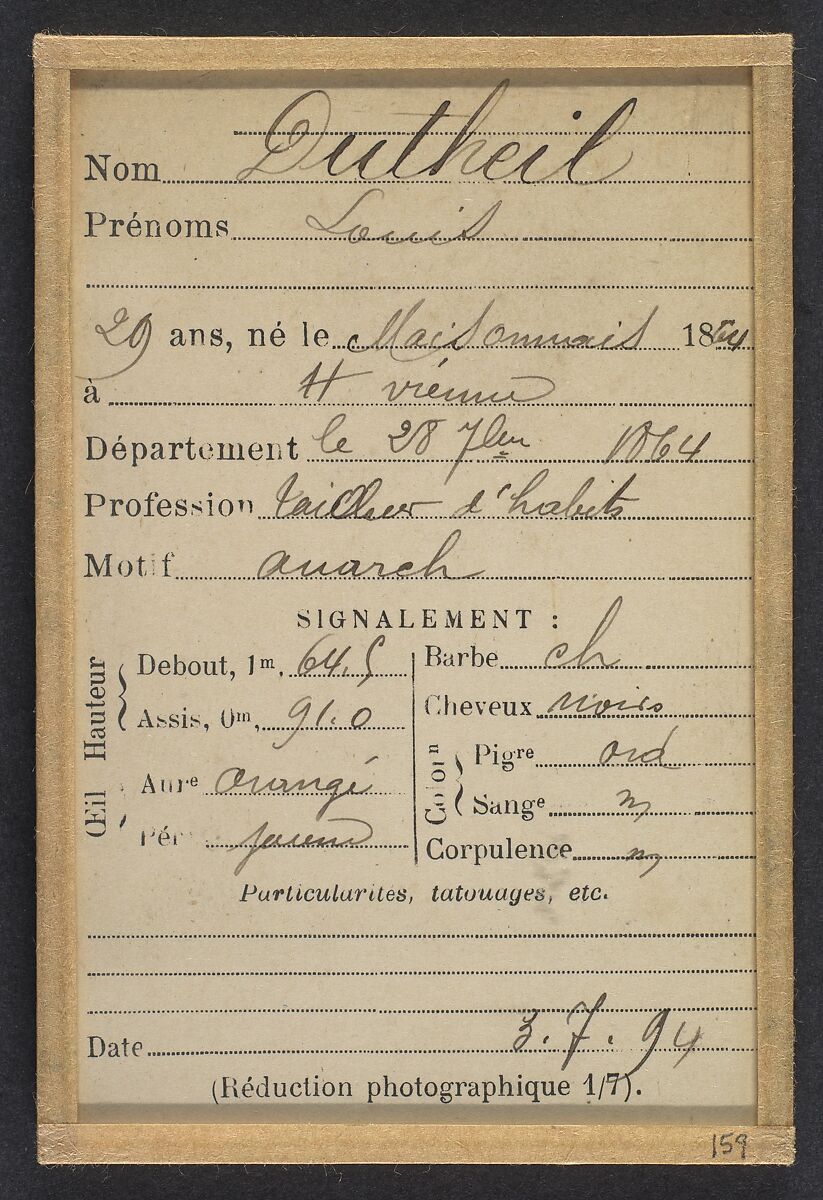 Nom Dutheil
Prénoms Louis
29 ans, né le Maisonnais 1864
à Hte vienne
Département le 28 7bre 1864
Profession tailleur d'habits
Motif anarch
SIGNALEMENT :
Hauteur
Debout, 1m, 64.5
Assis, 0m, 91.0
Œil
Aure orangé
Pér
Barbe ch
Cheveux noirs
Coloon
Pigre ord
Sange m
Corpulence m
Particularités, tatouages, etc.
Date 3.7.94
(Réduction photographique 1/7).
159